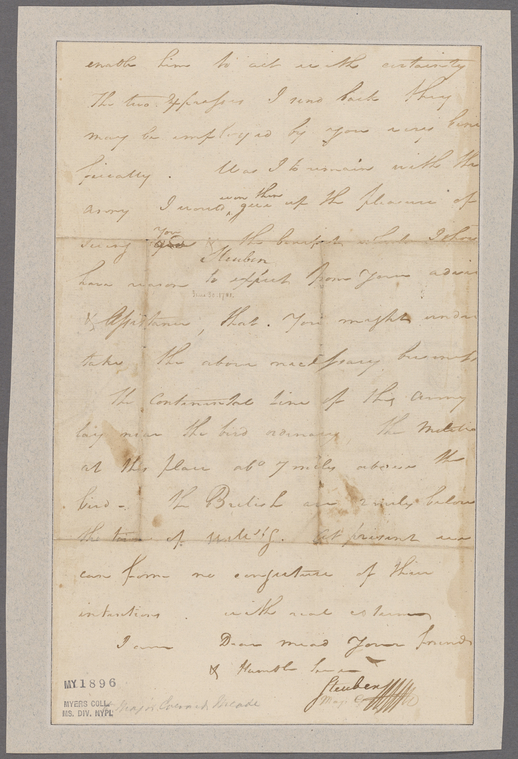 enable him to act with certainty
the two Expresses I send back they
may be employed by you very bene
ficially. Was I to remain with the
army I would even then give up the pleasure of
seeing you & the benefit which I shou
Steuben
have reason to expect from your advice
June 30, 1781
& Assistance, that You might under
take the above necessary business
the Continental Line of the army
lay near the bird ordinary the Militia
at this place abt 7 miles above the
bird - the British are 2 miles below
the town of
at present we
can form no conjecture of their
intentions. with real esteem
I am Dear mead your friend
& Humble Serv
Steuben
Maj G
MY 1896
MYERS COLL.
MS. DIV. NYPL